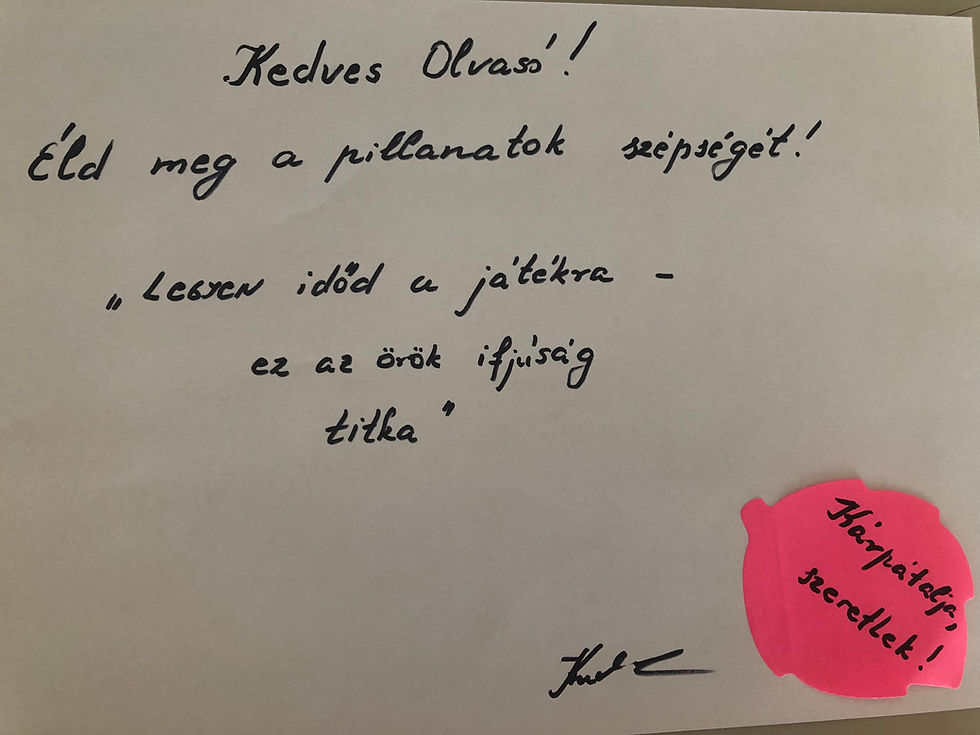 Kedves Olvasó!
Éld meg a pillanatok szépségét!
„Legyen időd a játékra -
ez az örök ifjúság
titka”
Kárpátalja,
szeretlek!